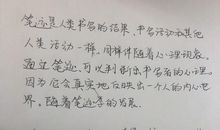 笔迹是人类书写的结果，书写活动和其他
人类活动一样，同样伴随着心理现象。
通过笔迹，可以判断出书写者的心理。
因为它会真实地反映出一个人的内心世
界。随着笔迹学的发展.